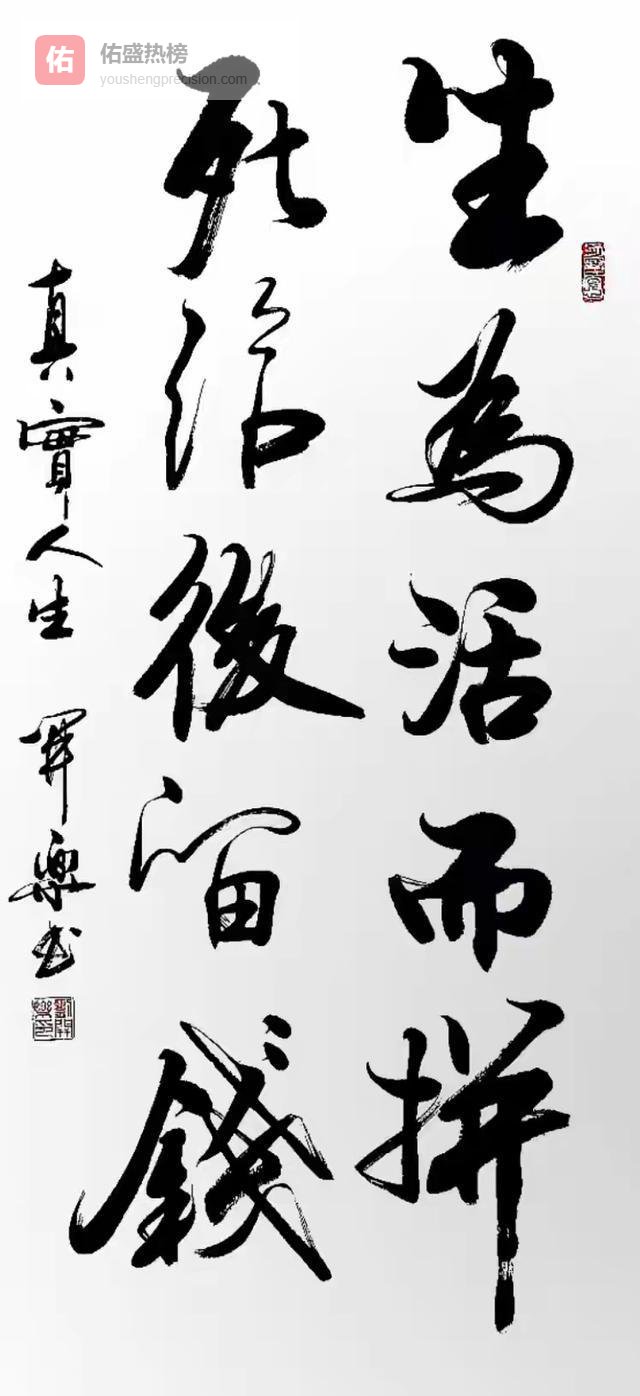 佑
佑盛热榜
youshengprecision.com...
生為活而拼
死給後留錢
真實人生 開樂书